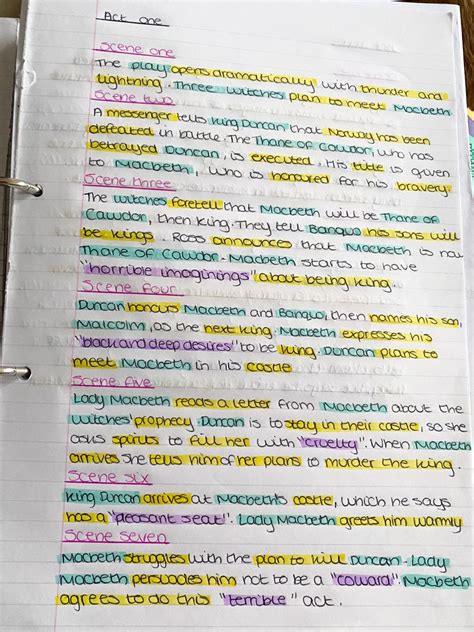 Act one
Scene one
The play opens dramatically with thunder and
lightning. Three witches plan to meet Macbeth
Scene two
A messenger tells King Duncan that Norway has been
defeated in battle. The Thane of Cawdor, who has
betrayed Duncan, is executed. His title is given
to Macbeth, who is honoured for his bravery.
Scene three
The witches foretell that Macbeth will be Thane of
Cawdor, then King. They tell Banquo his sons will
be kings. Ross announces that Macbeth is now
Thane of Cawdor. Macbeth starts to have
"horrible imaginings" about being king.
Scene four
Duncan honours Macbeth and Banquo, then names his son,
Malcolm, as the next king. Macbeth expresses his
"black and deep desires" to be king. Duncan plans to
meet Macbeth in his castle
Scene five
Lady Macbeth reads a letter from Macbeth about the
witches' prophecy. Duncan is to stay in their castle, so she
asks spirits to fill her with "cruelty". When Macbeth
arrives she tells him of her plans to murder the king.
Scene six
King Duncan arrives at Macbeth's castle, which he says
has a "pleasant seat". Lady Macbeth greets him warmly
Scene seven
Macbeth struggles with the plan to kill Duncan. Lady
Macbeth persuades him not to be a "coward". Macbeth
agrees to do this "terrible" act.